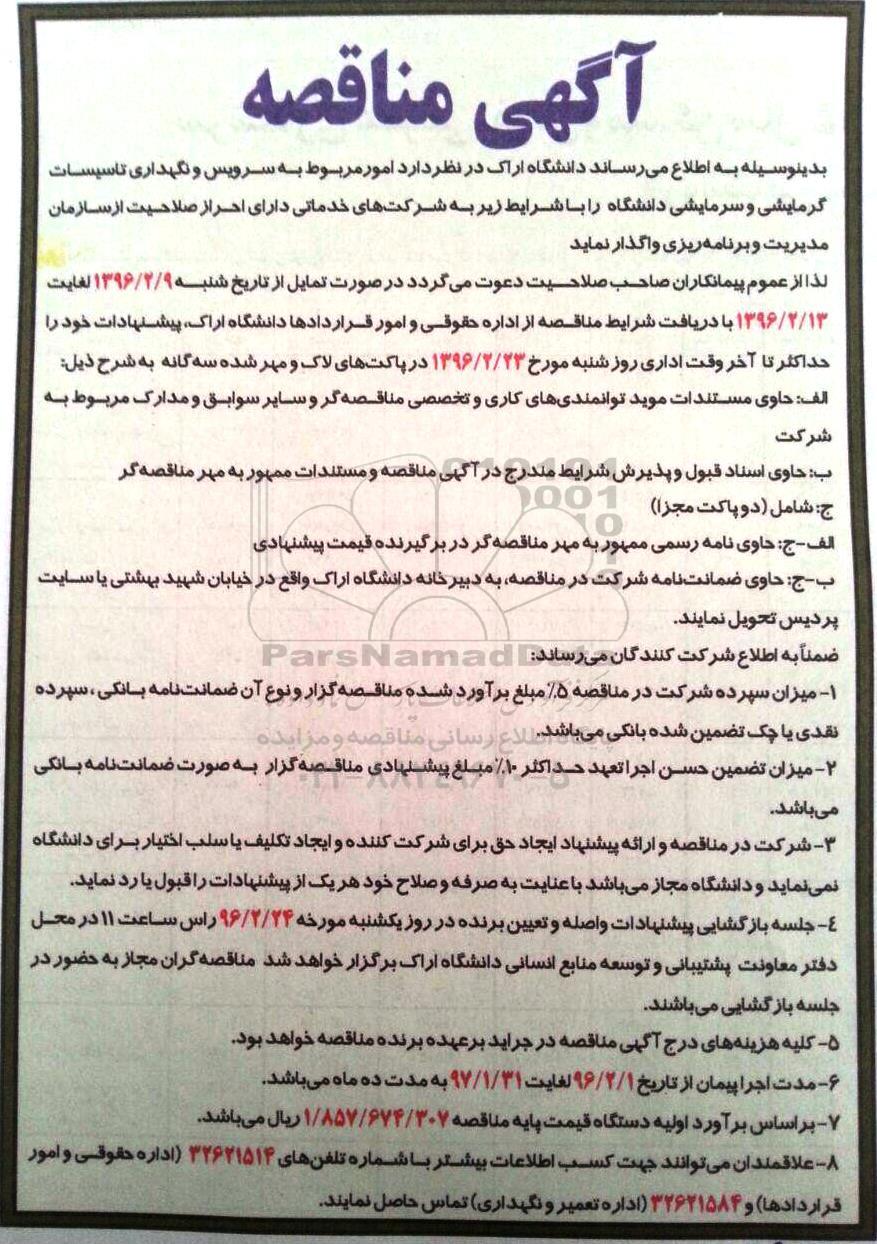 آگهی مناقصه
بدینوسیله به اطلاع می‌رساند دانشگاه اراک در نظر دارد امور مربوط به سرویس و نگهداری تاسیسات
گرمایشی و سرمایشی دانشگاه را با شرایط زیر به شرکت‌های خدماتی دارای احراز صلاحیت از سازمان
مدیریت و برنامه‌ریزی واگذار نماید
لذا از عموم پیمانکاران صاحب صلاحیت دعوت می‌گردد در صورت تمایل از تاریخ شنبه ۱۳۹۶/۲/۹ لغایت
۱۳۹۶/۲/۱۳ با دریافت شرایط مناقصه از اداره حقوقی و امور قراردادها دانشگاه اراک، پیشنهادات خود را
حداکثر تا آخر وقت اداری روز شنبه مورخ ۱۳۹۶/۲/۲۳ در پاکت‌های لاک و مهر شده سه‌گانه به شرح ذیل:
الف: حاوی مستندات موید توانمندی‌های کاری و تخصصی مناقصه‌گر و سایر سوابق و مدارک مربوط به
شرکت
ب: حاوی اسناد قبول و پذیرش شرایط مندرج در آگهی مناقصه و مستندات ممهور به مهر مناقصه‌گر
ج: شامل (دو پاکت مجزا)
الف-ج: حاوی نامه رسمی ممهور به مهر مناقصه‌گر در برگیرنده قیمت پیشنهادی
ب-ج: حاوی ضمانت‌نامه شرکت در مناقصه، به دبیرخانه دانشگاه اراک واقع در خیابان شهید بهشتی یا سایت
پردیس تحویل نمایند.
ParsNamadData
ضمناً به اطلاع شرکت کنندگان می‌رساند:
۱- میزان سپرده شرکت در مناقصه ۵٪ مبلغ برآورد شده مناقصه‌گزار و نوع آن ضمانت‌نامه بانکی، سپرده
نقدی یا چک تضمین شده بانکی می‌باشد.
پایگاه اطلاع رسانی مناقصه و مزایده
۲- میزان تضمین حسن اجرا تعهد حداکثر ۱۰٪ مبلغ پیشنهادی مناقصه‌گزار به صورت ضمانت‌نامه بانکی
می‌باشد.
۳- شرکت در مناقصه و ارائه پیشنهاد ایجاد حق برای شرکت کننده و ایجاد تکلیف یا سلب اختیار برای دانشگاه
نمی‌نماید و دانشگاه مجاز می‌باشد با عنایت به صرفه و صلاح خود هر یک از پیشنهادات را قبول یا رد نماید.
٤- جلسه بازگشایی پیشنهادات واصله و تعیین برنده در روز یکشنبه مورخه ۹۶/۲/۲۴ راس ساعت ۱۱ در محل
دفتر معاونت پشتیبانی و توسعه منابع انسانی دانشگاه اراک برگزار خواهد شد مناقصه‌گران مجاز به حضور در
جلسه بازگشایی می‌باشند.
۵- کلیه هزینه‌های درج آگهی مناقصه در جراید برعهده برنده مناقصه خواهد بود.
۶- مدت اجرا پیمان از تاریخ ۹۶/۲/۱ لغایت ۹۷/۱/۳۱ به مدت ده ماه می‌باشد.
۷- براساس برآورد اولیه دستگاه قیمت پایه مناقصه ۱/۸۵۷/۶۷۴/۳۰۷ ریال می‌باشد.
۸- علاقمندان می‌توانند جهت کسب اطلاعات بیشتر با شماره تلفن‌های ۳۲۶۲۱۵۱۴ (اداره حقوقی و امور
قراردادها) و ۳۲۶۲۱۵۸۴ (اداره تعمیر و نگهداری) تماس حاصل نمایند.